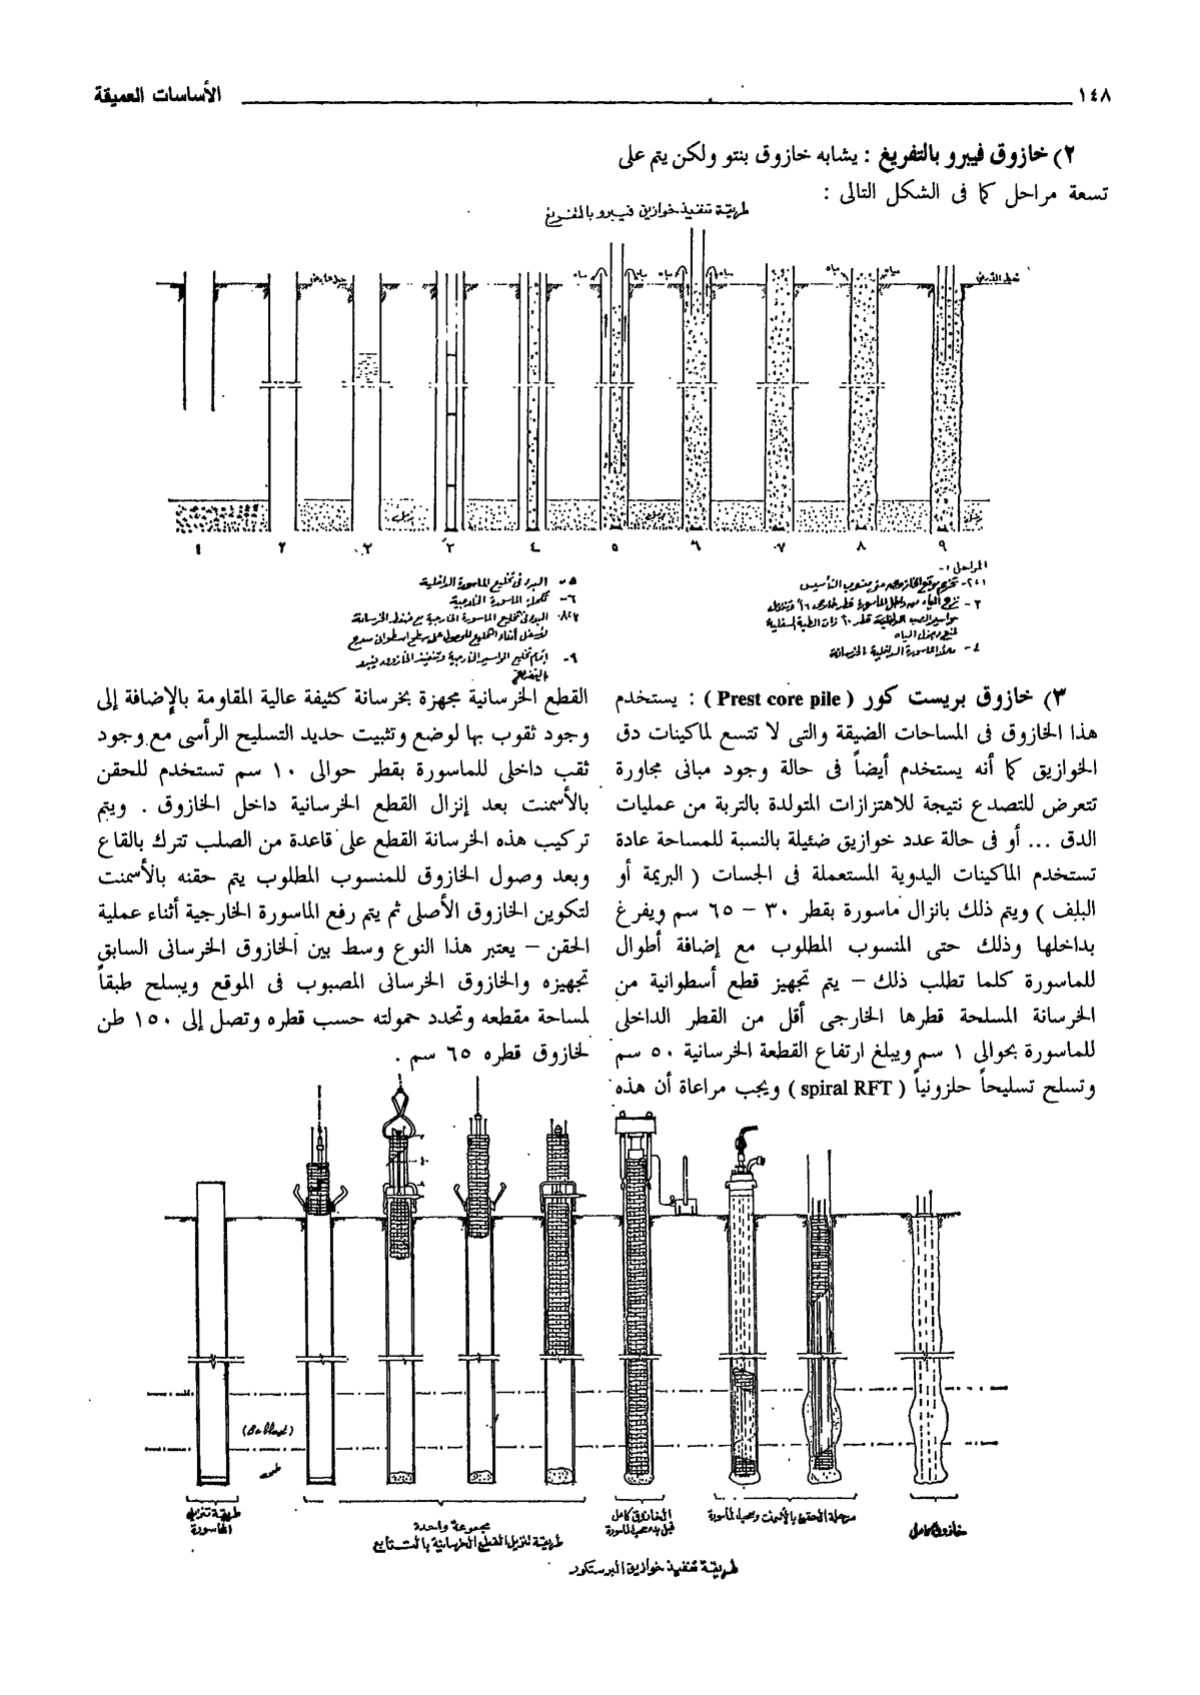 ١٤٨
الأساسات العميقة
٢) خازوق فيبرو بالتفريغ : يشابه خازوق بنتو ولكن يتم على
تسعة مراحل كما فى الشكل التالى :
طريقة تنفيذ خوازيق فيبرو بالتفريغ
مياه مياه مياه مياه مياه مياه
رمل رمل رمل
١ ٢ ٢ ٣ ٤ ٥ ٦ ٧ ٨ ٩
المراحل :-
٤- ملأ الماسورة الداخلية بالخرسانة
٥- البدء فى تخليع الماسورة الداخلية
٦- الماسورة الخارجية
٧، ٨- البدء فى تخليع الماسورة الخارجية مع ضغط الخرسانة
٩- إتمام تخليع المواسير الخارجية وتنفيذ الخازوق
٣) خازوق بريست كور ( Prest core pile ) : يستخدم
هذا الخازوق فى المساحات الضيقة والتى لا تتسع لماكينات دق
الخوازيق كما أنه يستخدم أيضاً فى حالة وجود مبانى مجاورة
تتعرض للتصدع نتيجة للاهتزازات المتولدة بالتربة من عمليات
الدق ... أو فى حالة عدد خوازيق ضئيلة بالنسبة للمساحة عادة
تستخدم الماكينات اليدوية المستعملة فى الجسات ( البريمة أو
البلف ) ويتم ذلك بانزال ماسورة بقطر ٣٠ – ٦٥ سم ويفرغ
بداخلها وذلك حتى المنسوب المطلوب مع إضافة أطوال
للماسورة كلما تطلب ذلك – يتم تجهيز قطع أسطوانية من
الخرسانة المسلحة قطرها الخارجى أقل من القطر الداخلى
للماسورة بحوالى ١ سم ويبلغ ارتفاع القطعة الخرسانية ٥٠ سم
وتسلح تسليحاً حلزونياً ( spiral RFT ) ويجب مراعاة أن هذه
القطع الخرسانية مجهزة بخرسانة كثيفة عالية المقاومة بالإضافة إلى
وجود ثقوب بها لوضع وتثبيت حديد التسليح الرأسى مع وجود
ثقب داخلى للماسورة بقطر حوالى ١٠ سم تستخدم للحقن
بالأسمنت بعد إنزال القطع الخرسانية داخل الخازوق . ويتم
تركيب هذه الخرسانة القطع على قاعدة من الصلب تترك بالقاع
وبعد وصول الخازوق للمنسوب المطلوب يتم حقنه بالأسمنت
لتكوين الخازوق الأصلى ثم يتم رفع الماسورة الخارجية أثناء عملية
الحقن – يعتبر هذا النوع وسط بين الخازوق الخرسانى السابق
تجهيزه والخازوق الخرسانى المصبوب فى الموقع ويسلح طبقاً
لمساحة مقطعه وتحدد حمولته حسب قطره وتصل إلى ١٥٠ طن
لخازوق قطره ٦٥ سم .
(Ballast)
طريقة تنزيل
الماسورة
مجموعة واحدة
طريقة تنزيل القطع الخرسانية بالتتابع
الخازوق كامل
قبل بدء سحب الماسورة
مرحلة الحقن بالأسمنت وسحب الماسورة
خازوق كامل
طريقة تنفيذ خوازيق البرستكور